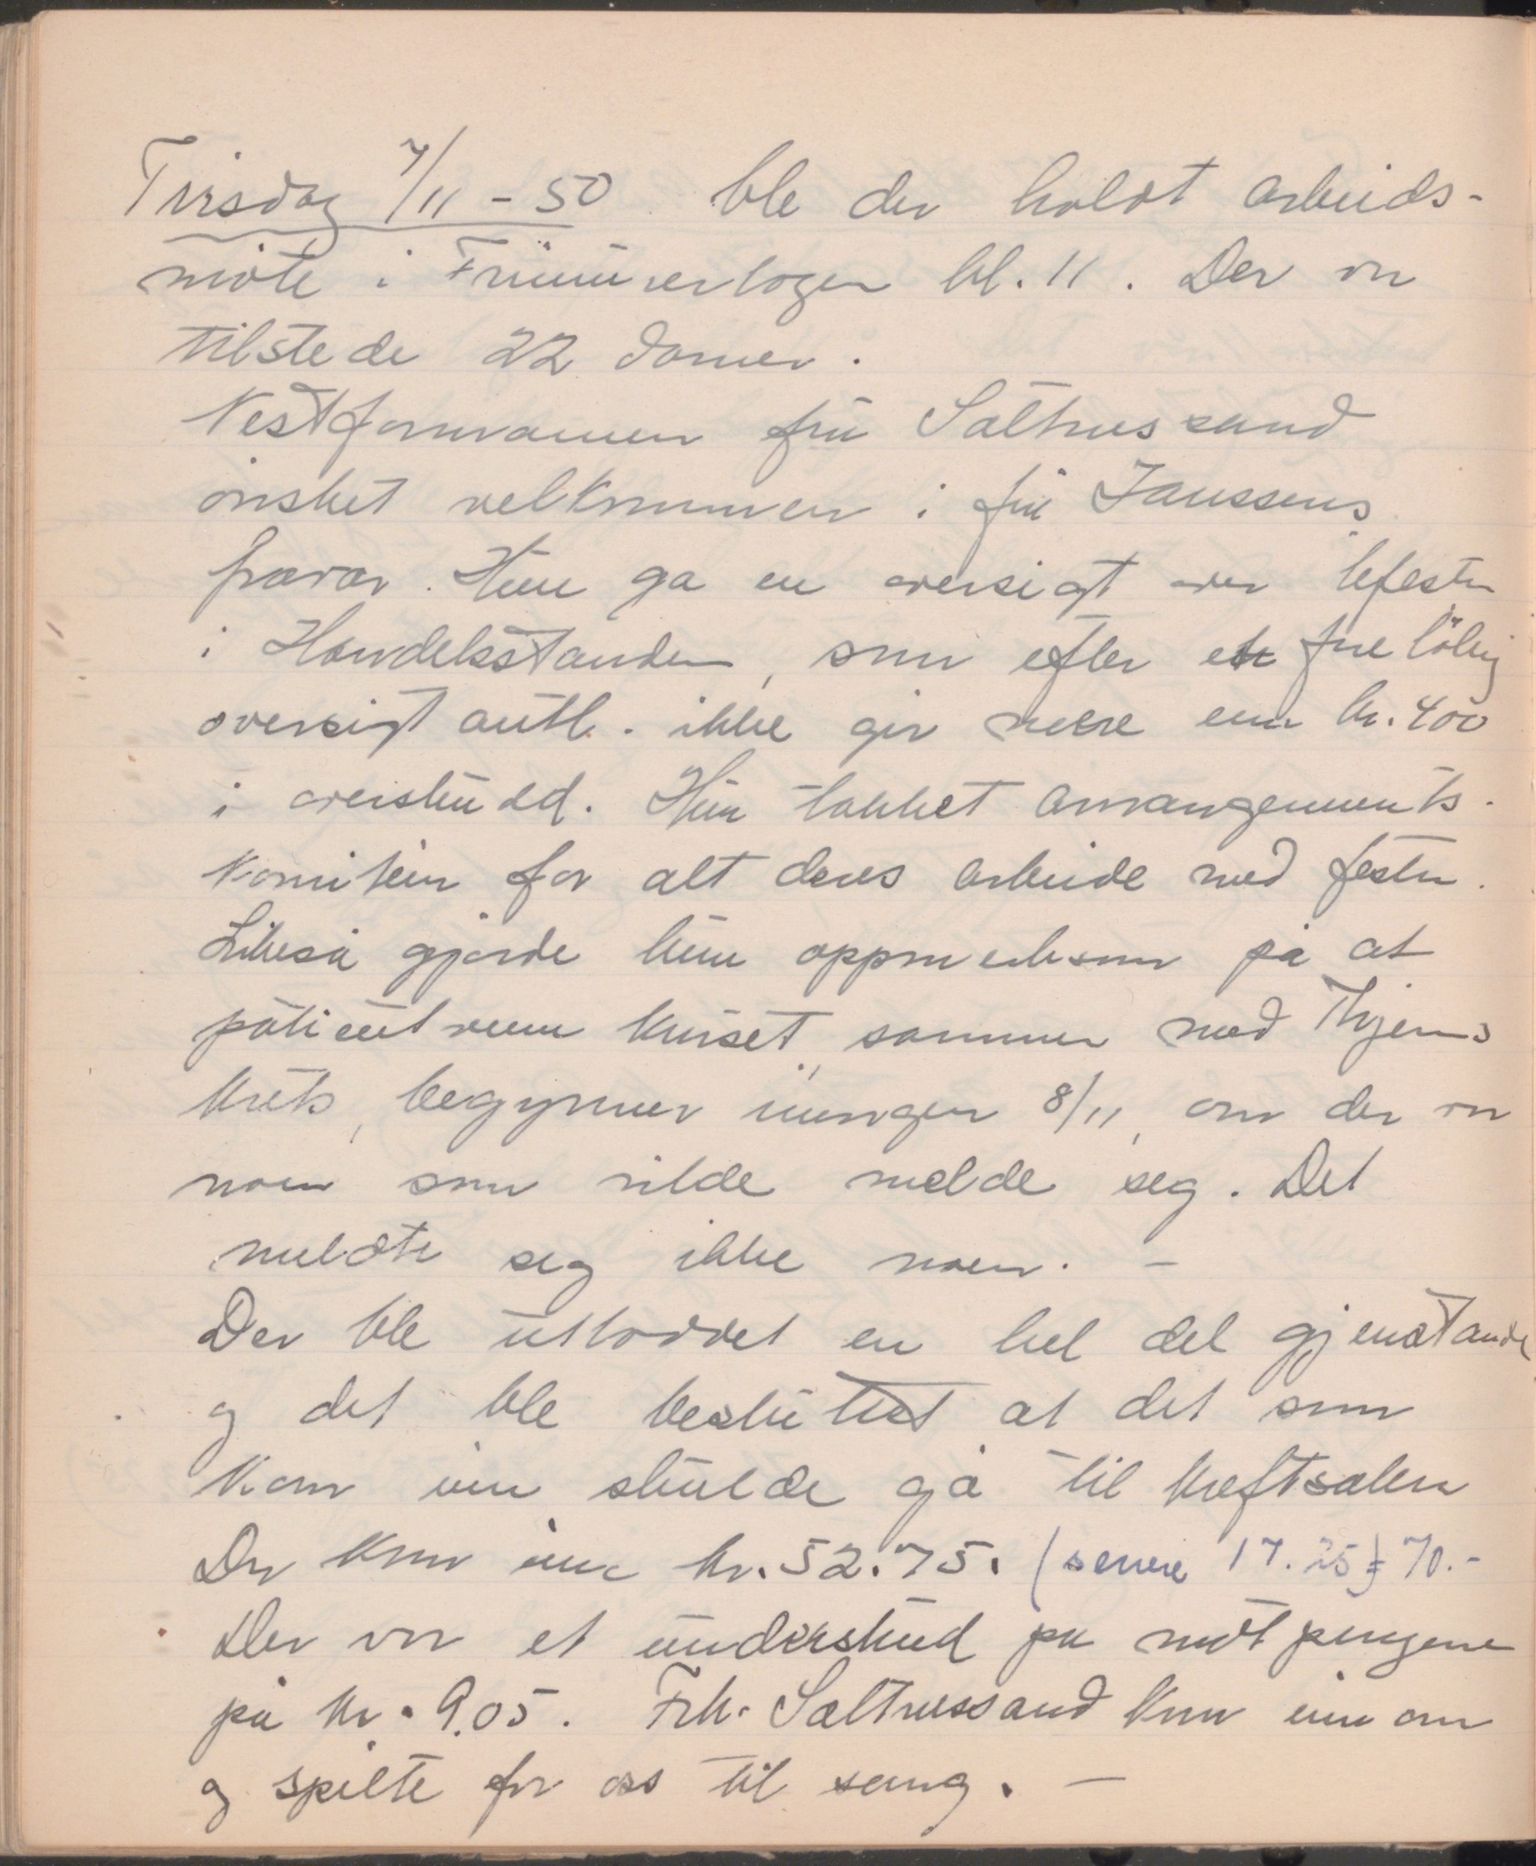 Tirsdag 7/11 - 50 ble der holdt arbeids-
møte i Frimurerlogen kl. 11. Der var
tilstede 22 damer.
Nestformannen fru Salthussand
ønsket velkommen i fru Janssens
fravær. Hun ga en oversigt over tefesten
i Handelsstanden, som efter en foreløbig
oversigt antl. ikke gir mere enn kr. 400
i overskudd. Hun takket arrangements-
komiteen for alt deres arbeide med festen.
Likeså gjorde hun oppmerksom på at
kurset, sammen med
krets, begynner imorgen 8/11, om der var
noen som vilde melde seg. Det
meldte seg ikke noen. -
Der ble utloddet en hel del gjenstande
og det ble besluttet at det som
kom inn skulde gå til kreftsaken
Der kom inn kr. 52.75. (senere 17.25) = 70.-
Der var et underskud på møtpengene
på kr. 9.05. Frk. Salthussand kom inn om
og spilte for oss til sang. -